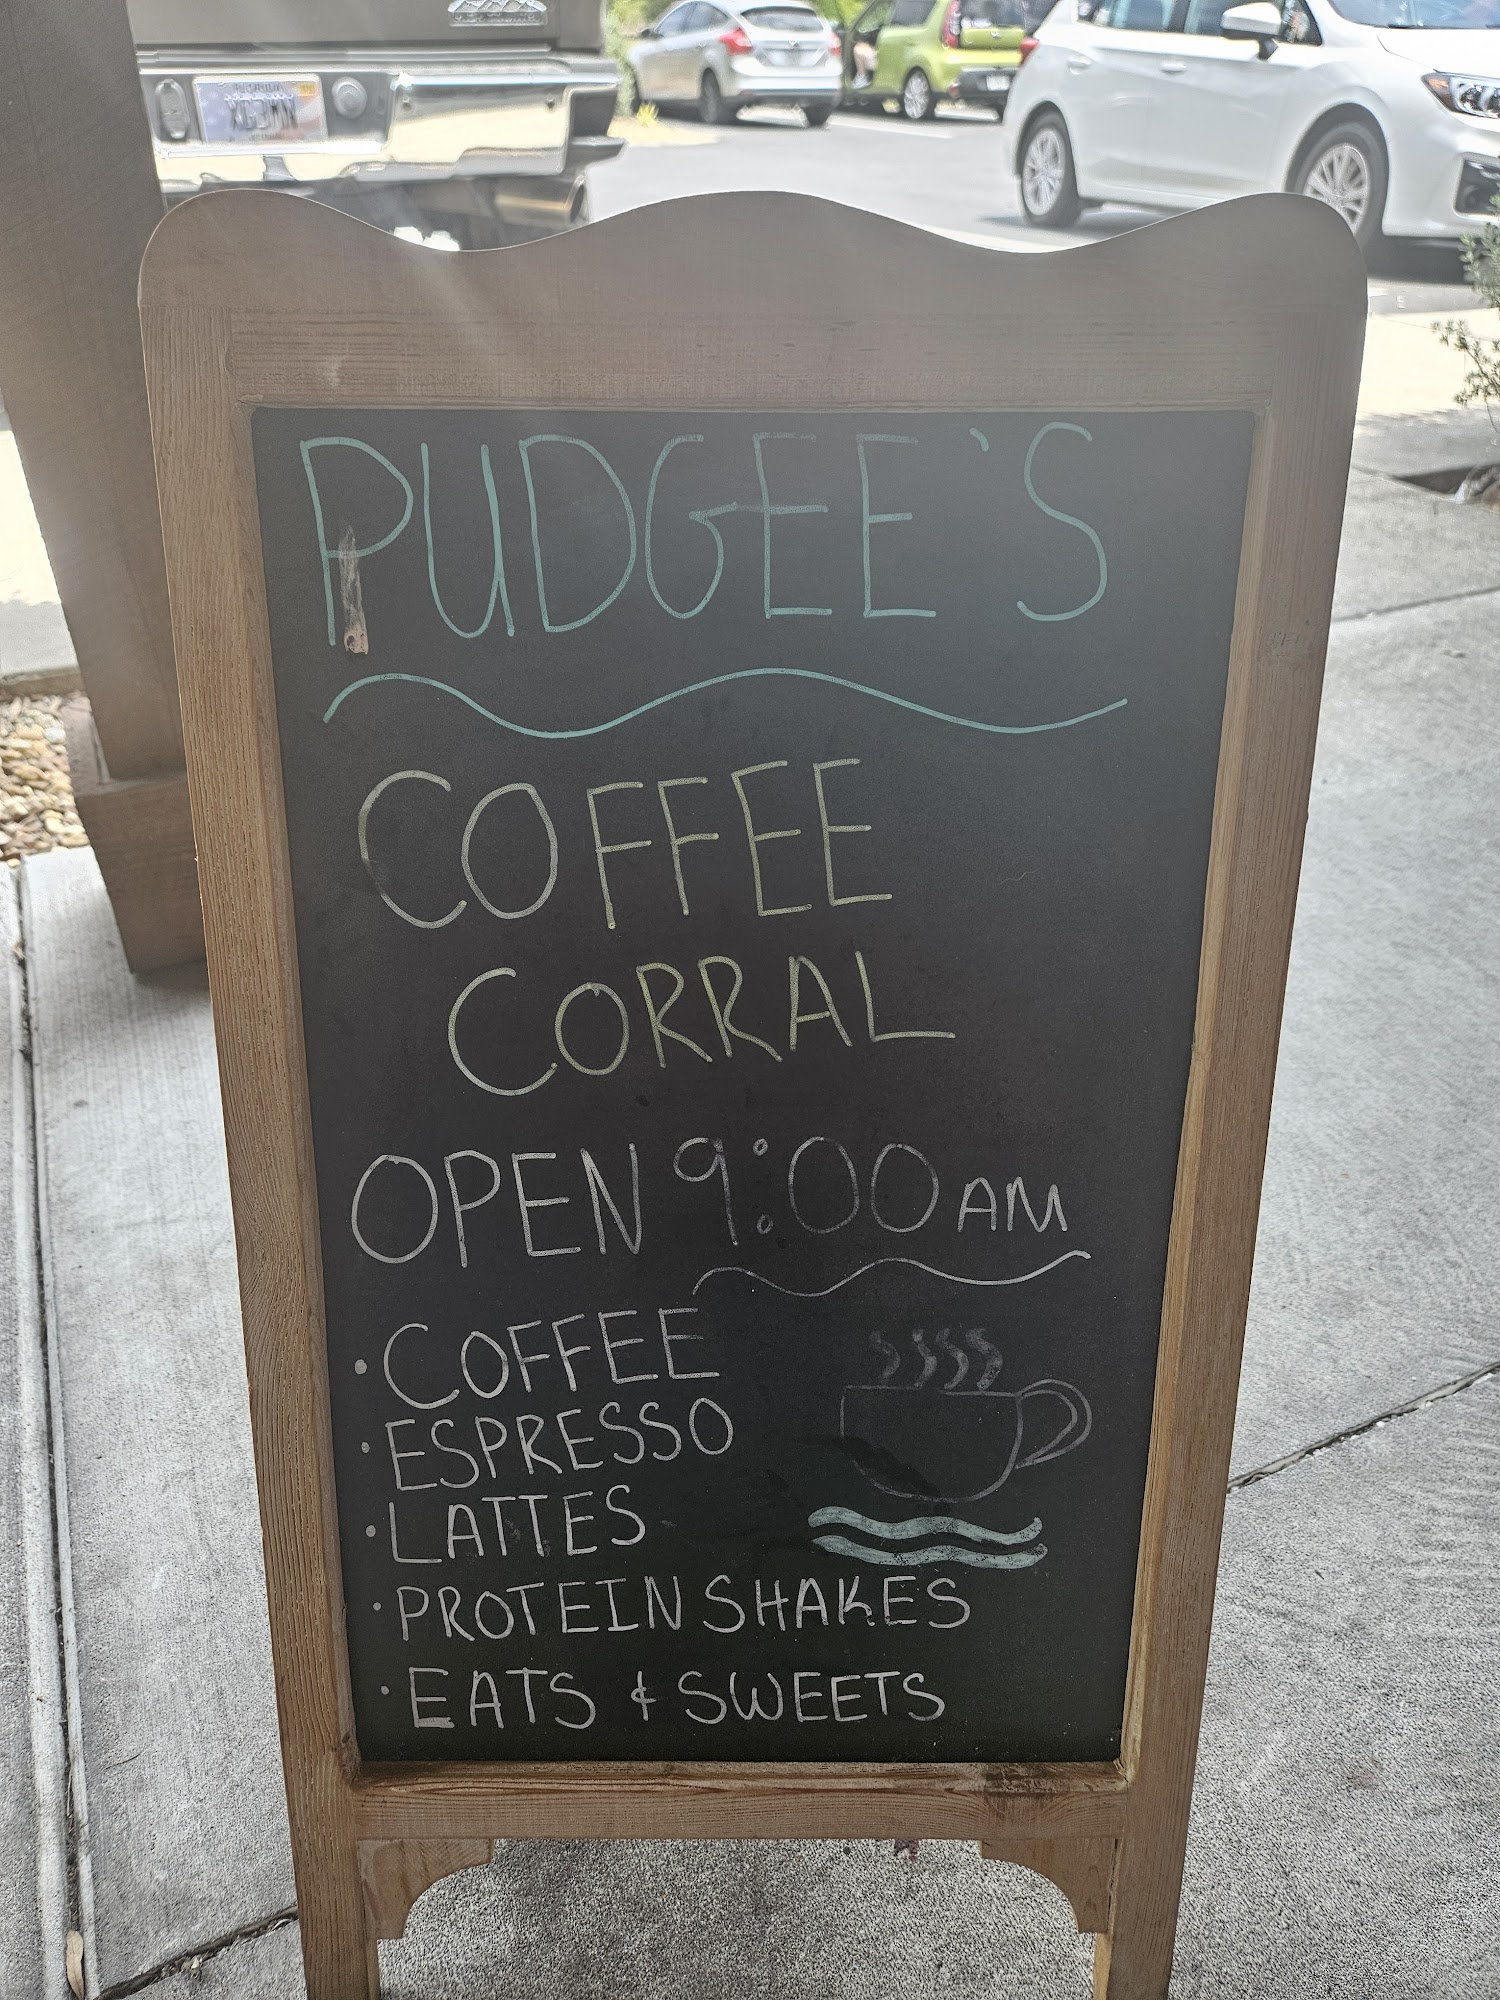 PUDGEE'S
COFFEE
CORRAL
OPEN 9:00 AM
• COFFEE
• ESPRESSO
• LATTES
• PROTEIN SHAKES
• EATS & SWEETS